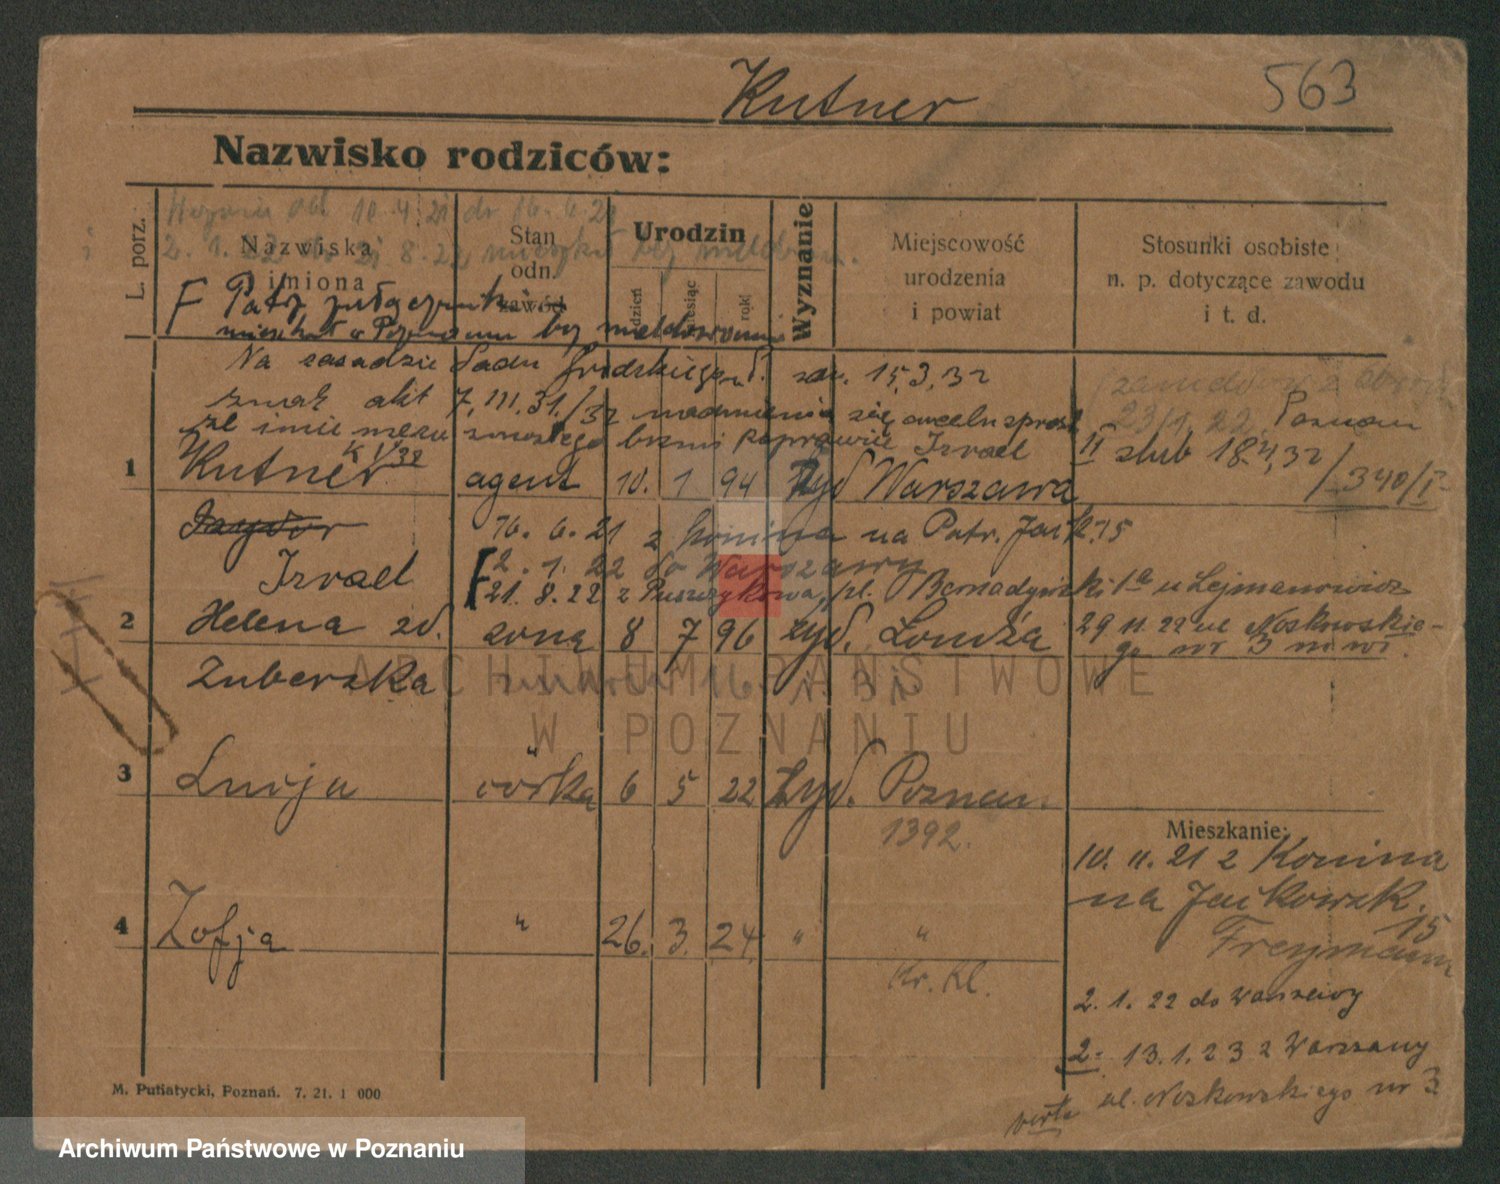 Kutner
563
Nazwisko rodziców:
L. porz.
Nazwiska
i imiona
Stan
odn.
zawód
Urodzin
dzień
miesiąc
rok
Wyznanie
Miejscowość
urodzenia
i powiat
Stosunki osobiste
n. p. dotyczące zawodu
i t. d.
10. 4. 21 do 16. 6. 21
i 2. 1. 22 21 8. 22 bez meldowan.
F Patrz
mieszkał w Poznaniu bez meldowania
Na zasadzie Sądu Grodzkiego 15,3,32
znak akt 7,III.31./32 nadmienia się, w celu sprost
że imię męża brzmi poprawnie Izrael
K 1/32
23/1. 22. Poznań
II ślub 18.4,32
/340/I
1 Kutner agent 10. 1 94 żyd Warszawa
Izydor
Izrael
16. 6. 21 z Konina na Patr. Jack. 15
2. 1. 22 do Warszawy
21. 8. 22 z Puszczykowa, pl. Bernadyński 1a u Lejmanowicz
2 Helena zd. żona 8 7 96 żyd. Londża
29 11. 22 ul Noskowskie-
go nr 3
Zuberska
3 Lucja córka 6 5 22 żyd. Poznań
1392.
4 Zofja " 26. 3. 24. " "
Kr. kl.
Mieszkanie:
10. 11. 21 z Konina
na Jackowsk.
15
Freymann
2. 1. 22 do Warszawy
2. 13. 1. 23 z Warszawy
ul. Noskowskiego nr 3
verte
M. Putiatycki, Poznań. 7. 21. 1 000
ARCHIWUM PAŃSTWOWE
W POZNANIU
Archiwum Państwowe w Poznaniu